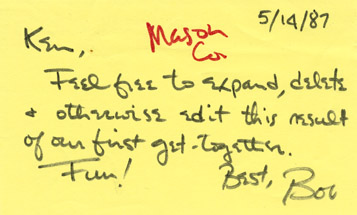 5/14/87
Ken,
Mason
Co
Feel free to expand, delete
& otherwise edit this result
of our first get-together.
Fun!
Best, Bob